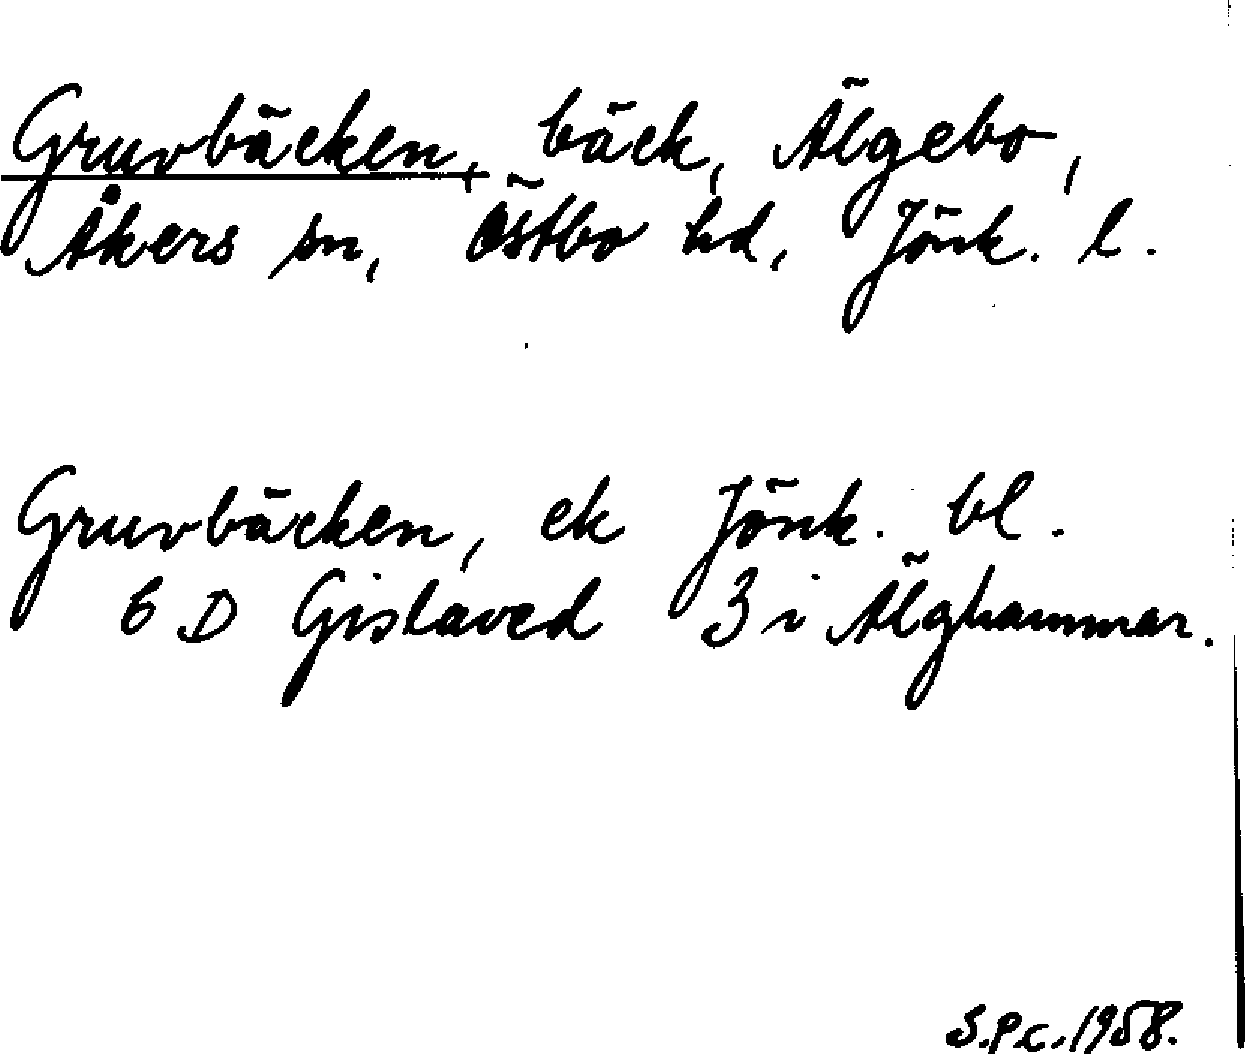 Gruvbäcken, bäck, Älgebo,
Åkers sn, Östbo hd, Jönk. l.
Gruvbäcken, ek Jönk. bl.
6 D Gislaved 3 i Älghammar.
S.P.C. 1958.